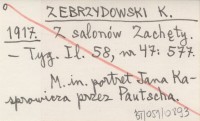 ZEBRZYDOWSKI K.
1917. Z salonów Zachęty.
– Tyg. Il. 58, nr 47: 577.
M. in. portret Jana Ka-
sprowicza przez Pautscha.